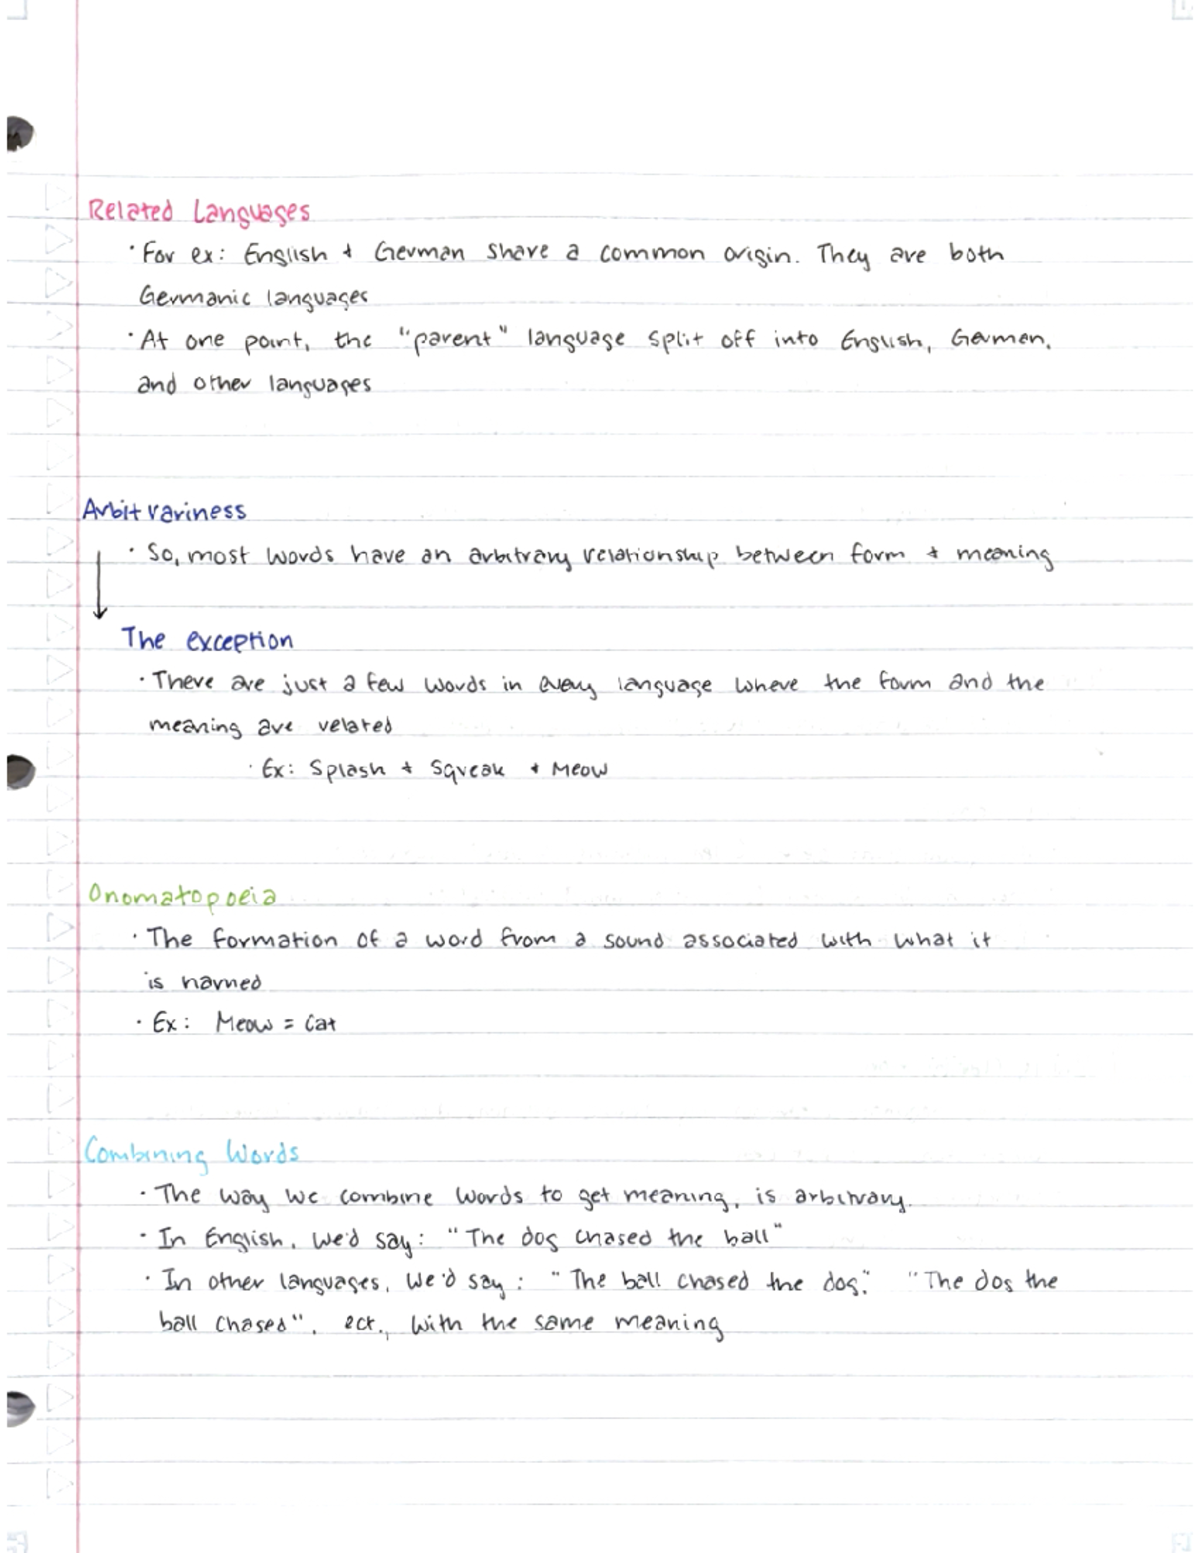 Related Languages
· For ex: English + German share a common origin. They are both
Germanic languages
· At one point, the "parent" language split off into English, German,
and other languages
Arbitrariness
· So, most words have an arbitrary relationship between form + meaning
The exception
· There are just a few words in every language where the form and the
meaning are related
· Ex: Splash + Squeak + Meow
Onomatopoeia
· The formation of a word from a sound associated with what it
is named
· Ex: Meow = Cat
Combining Words
· The way we combine words to get meaning, is arbitrary.
· In English, we'd say: "The dog chased the ball"
· In other languages, we'd say: "The ball chased the dog." "The dog the
ball chased", ect., with the same meaning